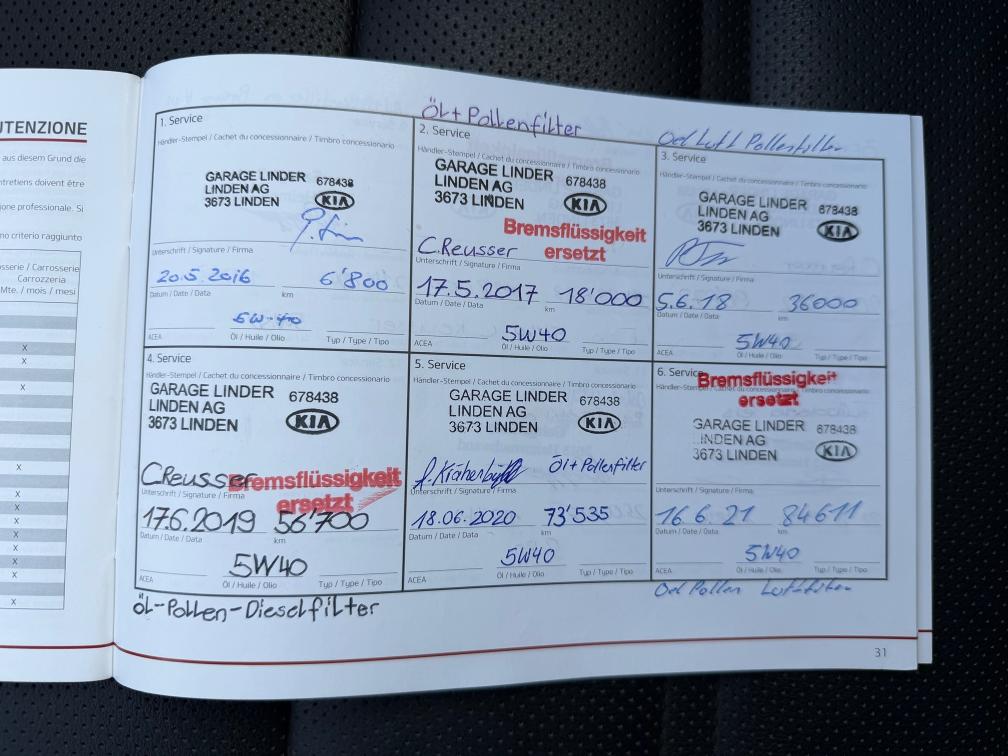 UTENZIONE
aus diesem Grund die
ntretiens doivent être
ione professionale. Si
no criterio raggiunto
sserie / Carrosserie
Carrozzeria
Mte. / mois / mesi
X
X
X
X
X
X
X
X
X
X
1. Service
Händler-Stempel / Cachet du concessionnaire / Timbro concessionario
GARAGE LINDER 678438
LINDEN AG
3673 LINDEN KIA
Unterschrift / Signature / Firma
20.5.2016 6'800
Datum / Date / Data km
5W-40
ACEA Öl / Huile / Olio Typ / Type / Tipo
Öl+Pollenfilter
2. Service
Händler-Stempel / Cachet du concessionnaire / Timbro concessionario
GARAGE LINDER 678438
LINDEN AG
3673 LINDEN KIA
Bremsflüssigkeit
ersetzt
C.Reusser
Unterschrift / Signature / Firma
17.5.2017 18'000
Datum / Date / Data km
5W40
ACEA Öl / Huile / Olio Typ / Type / Tipo
Oel Luft Pollenfilter
3. Service
Händler-Stempel / Cachet du concessionnaire / Timbro concessionario
GARAGE LINDER 678438
LINDEN AG
3673 LINDEN KIA
Unterschrift / Signature / Firma
5.6.18 36000
Datum / Date / Data km
5W40
ACEA Öl / Huile / Olio Typ / Type / Tipo
4. Service
Händler-Stempel / Cachet du concessionnaire / Timbro concessionario
GARAGE LINDER 678438
LINDEN AG
3673 LINDEN KIA
CReusser
Bremsflüssigkeit
ersetzt
Unterschrift / Signature / Firma
17.6.2019 56'700
Datum / Date / Data km
5W40
ACEA Öl / Huile / Olio Typ / Type / Tipo
Öl-Pollen-Dieselfilter
5. Service
Händler-Stempel / Cachet du concessionnaire / Timbro concessionario
GARAGE LINDER 678438
LINDEN AG
3673 LINDEN KIA
Öl+Pollenfilter
Unterschrift / Signature / Firma
18.06.2020 73'535
Datum / Date / Data km
5W40
ACEA Öl / Huile / Olio Typ / Type / Tipo
6. Service
Bremsflüssigkeit
ersetzt
GARAGE LINDER 678438
LINDEN AG
3673 LINDEN KIA
Unterschrift / Signature / Firma
16.6.21 84611
Datum / Date / Data km
5W40
ACEA Öl / Huile / Olio Typ / Type / Tipo
Oel Pollen Luftfilter
31